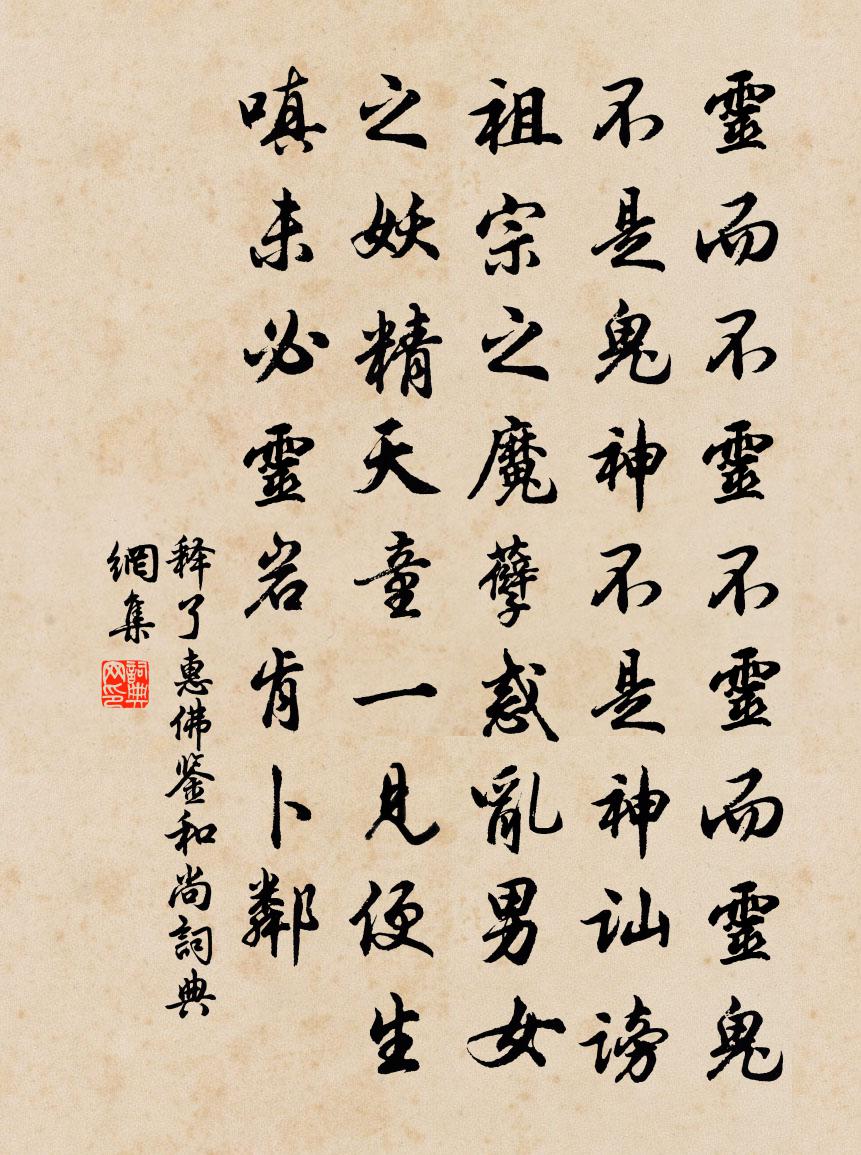 靈而不靈不靈而靈鬼
不是鬼神不是神訕謗
祖宗之魔孽惑亂男女
之妖精天童一見便生
嗔未必靈岩肯卜鄰
释了惠佛鉴和尚詞典
網集
詞典網印